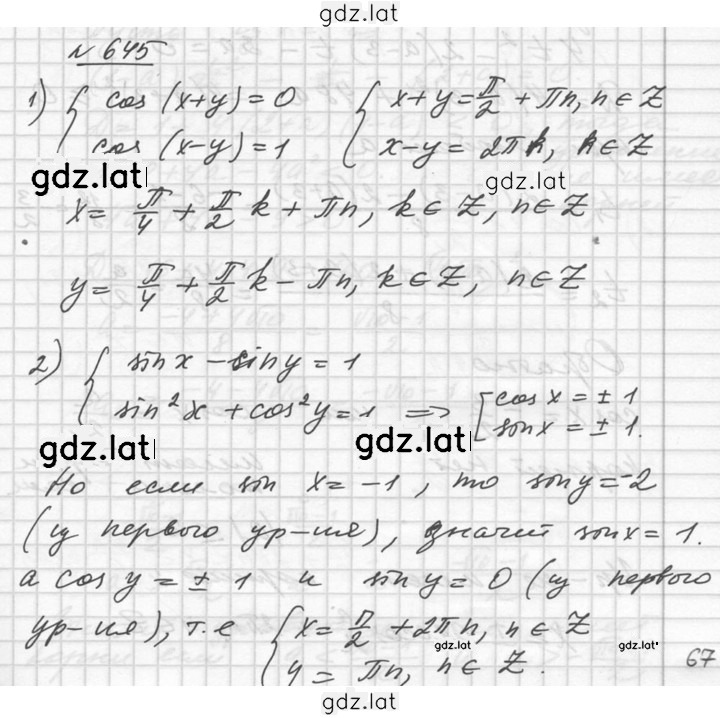 gdz.lat
№ 645
1) { cos (x+y) = 0 { x+y = π/2 + πn, n ∈ Z
cos (x-y) = 1 x-y = 2πk, k ∈ Z
gdz.lat gdz.lat
x = π/4 + π/2 k + πn, k ∈ Z, n ∈ Z
y = π/4 + π/2 k - πn, k ∈ Z, n ∈ Z
2) { sin x - sin y = 1
sin² x + cos² y = 1 => [ cos x = ± 1
sin x = ± 1.
gdz.lat gdz.lat
Но если sin x = -1, то sin y = -2
(из первого ур-ия), значит sin x = 1.
а cos y = ± 1 и sin y = 0 (из первого
ур-ия), т.е { x = π/2 + 2πn, n ∈ Z
y = πn, n ∈ Z.
gdz.lat
67
gdz.lat